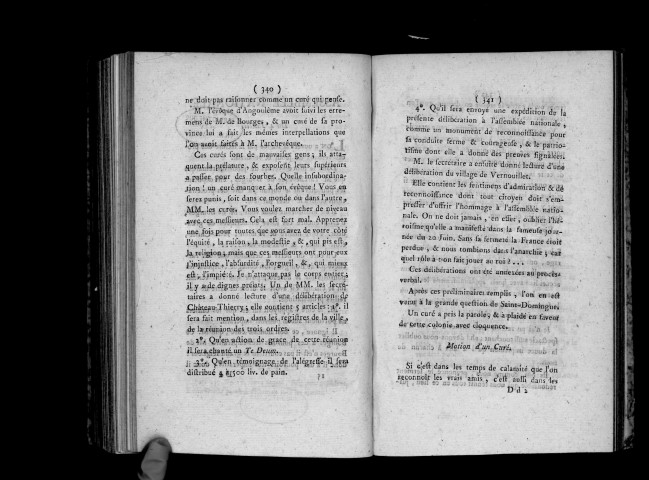 ( 340 )
ne doit pas raisonner comme un curé qui pense.
M. l'évêque d'Angoulême avoit suivi les erre-
mens de M. de Bourges, & un curé de sa pro-
vince lui a fait les mêmes interpellations que
l'on avoit faites à M. l'archevêque.
Ces curés sont de mauvaises gens ; ils atta-
quent la prélature, & exposent leurs supérieurs
à passer pour des fourbes. Quelle insubordina-
tion ! un curé manquer à son évêque ! Vous en
serez punis, soit dans ce monde ou dans l'autre,
MM. les curés. Vous voulez marcher de niveau
avec ces messieurs. Cela est fort mal. Apprenez
une fois pour toutes que vous avez de votre côté
l'équité, la raison, la modestie, &, qui pis est,
la religion ; mais que ces messieurs ont pour eux
l'injustice, l'absurdité, l'orgueil, &, qui mieux
est, l'impiété. Je n'attaque pas le corps entier ;
il y a de dignes prélats. Un de MM. les secré-
taires a donné lecture d'une délibération de
Château-Thierry ; elle contient 5 articles : 1°. il
sera fait mention, dans les régistres de la ville,
de la réunion des trois ordres.
2°. Qu'en action de grace de cette réunion
il sera chanté un Te Deum.
3°. Qu'en témoignage de l'alégresse il sera
distribué à 1500 liv. de pain.
( 341 )
4°. Qu'il sera envoyé une expédition de la
présente délibération à l'assemblée nationale,
comme un monument de reconnoissance pour
sa conduite ferme & courageuse, & le patrio-
tisme dont elle a donné des preuves signalées.
M. le secrétaire a ensuite donné lecture d'une
délibération du village de Vernouillet.
Elle contient les sentimens d'admiration & de
reconnoissance dont tout citoyen doit s'em-
presser d'offrir l'hommage à l'assemblée natio-
nale. On ne doit jamais, en effet, oublier l'hé-
roïsme qu'elle a manifesté dans la fameuse jour-
née du 20 Juin. Sans sa fermeté la France étoit
perdue, & nous tombions dans l'anarchie ; car
quel rôle a-t-on fait jouer au roi ? . . .
Ces délibérations ont été annexées au procès-
verbal.
Après ces préliminaires remplis, l'on en est
venu à la grande question de Saint-Domingue.
Un curé a pris la parole, & a plaidé en faveur
de cette colonie avec éloquence.
Motion d'un Curé.
Si c'est dans les temps de calamité que l'on
reconnoît les vrais amis, c'est aussi dans les
D d 2